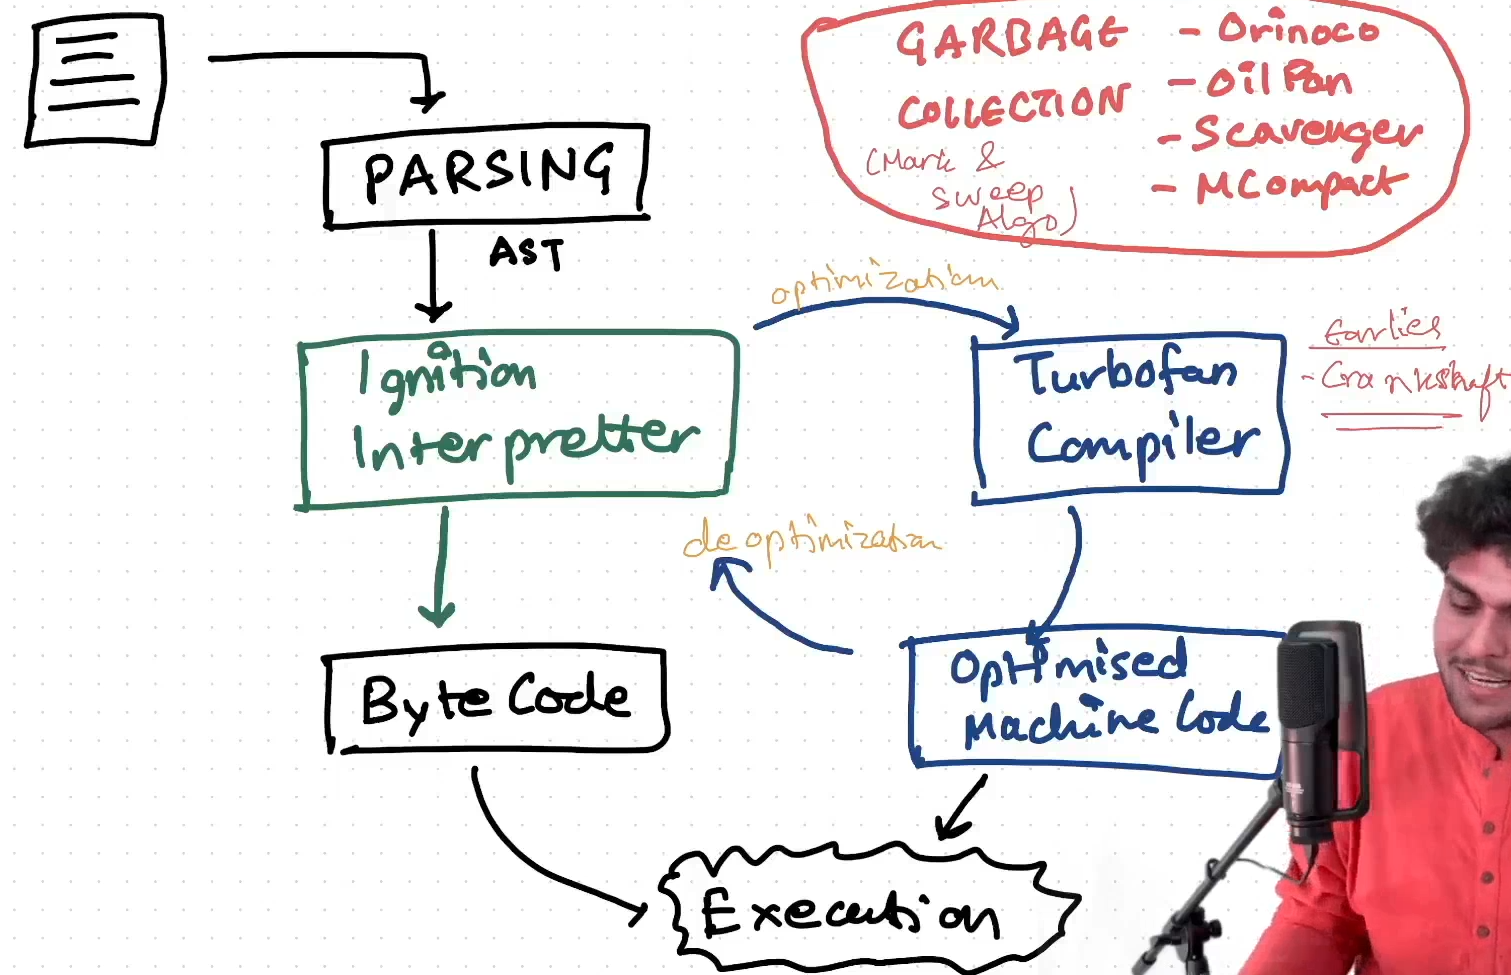 GARBAGE
COLLECTION
(Mark &
sweep
Algo)
- Orinoco
- Oilpan
- Scavenger
- MCompact
PARSING
AST
optimization
Ignition
Interpretter
Turbofan
Compiler
Earlies
- Crankshaft
deoptimization
Byte Code
Optimised
Machine Code
Execution